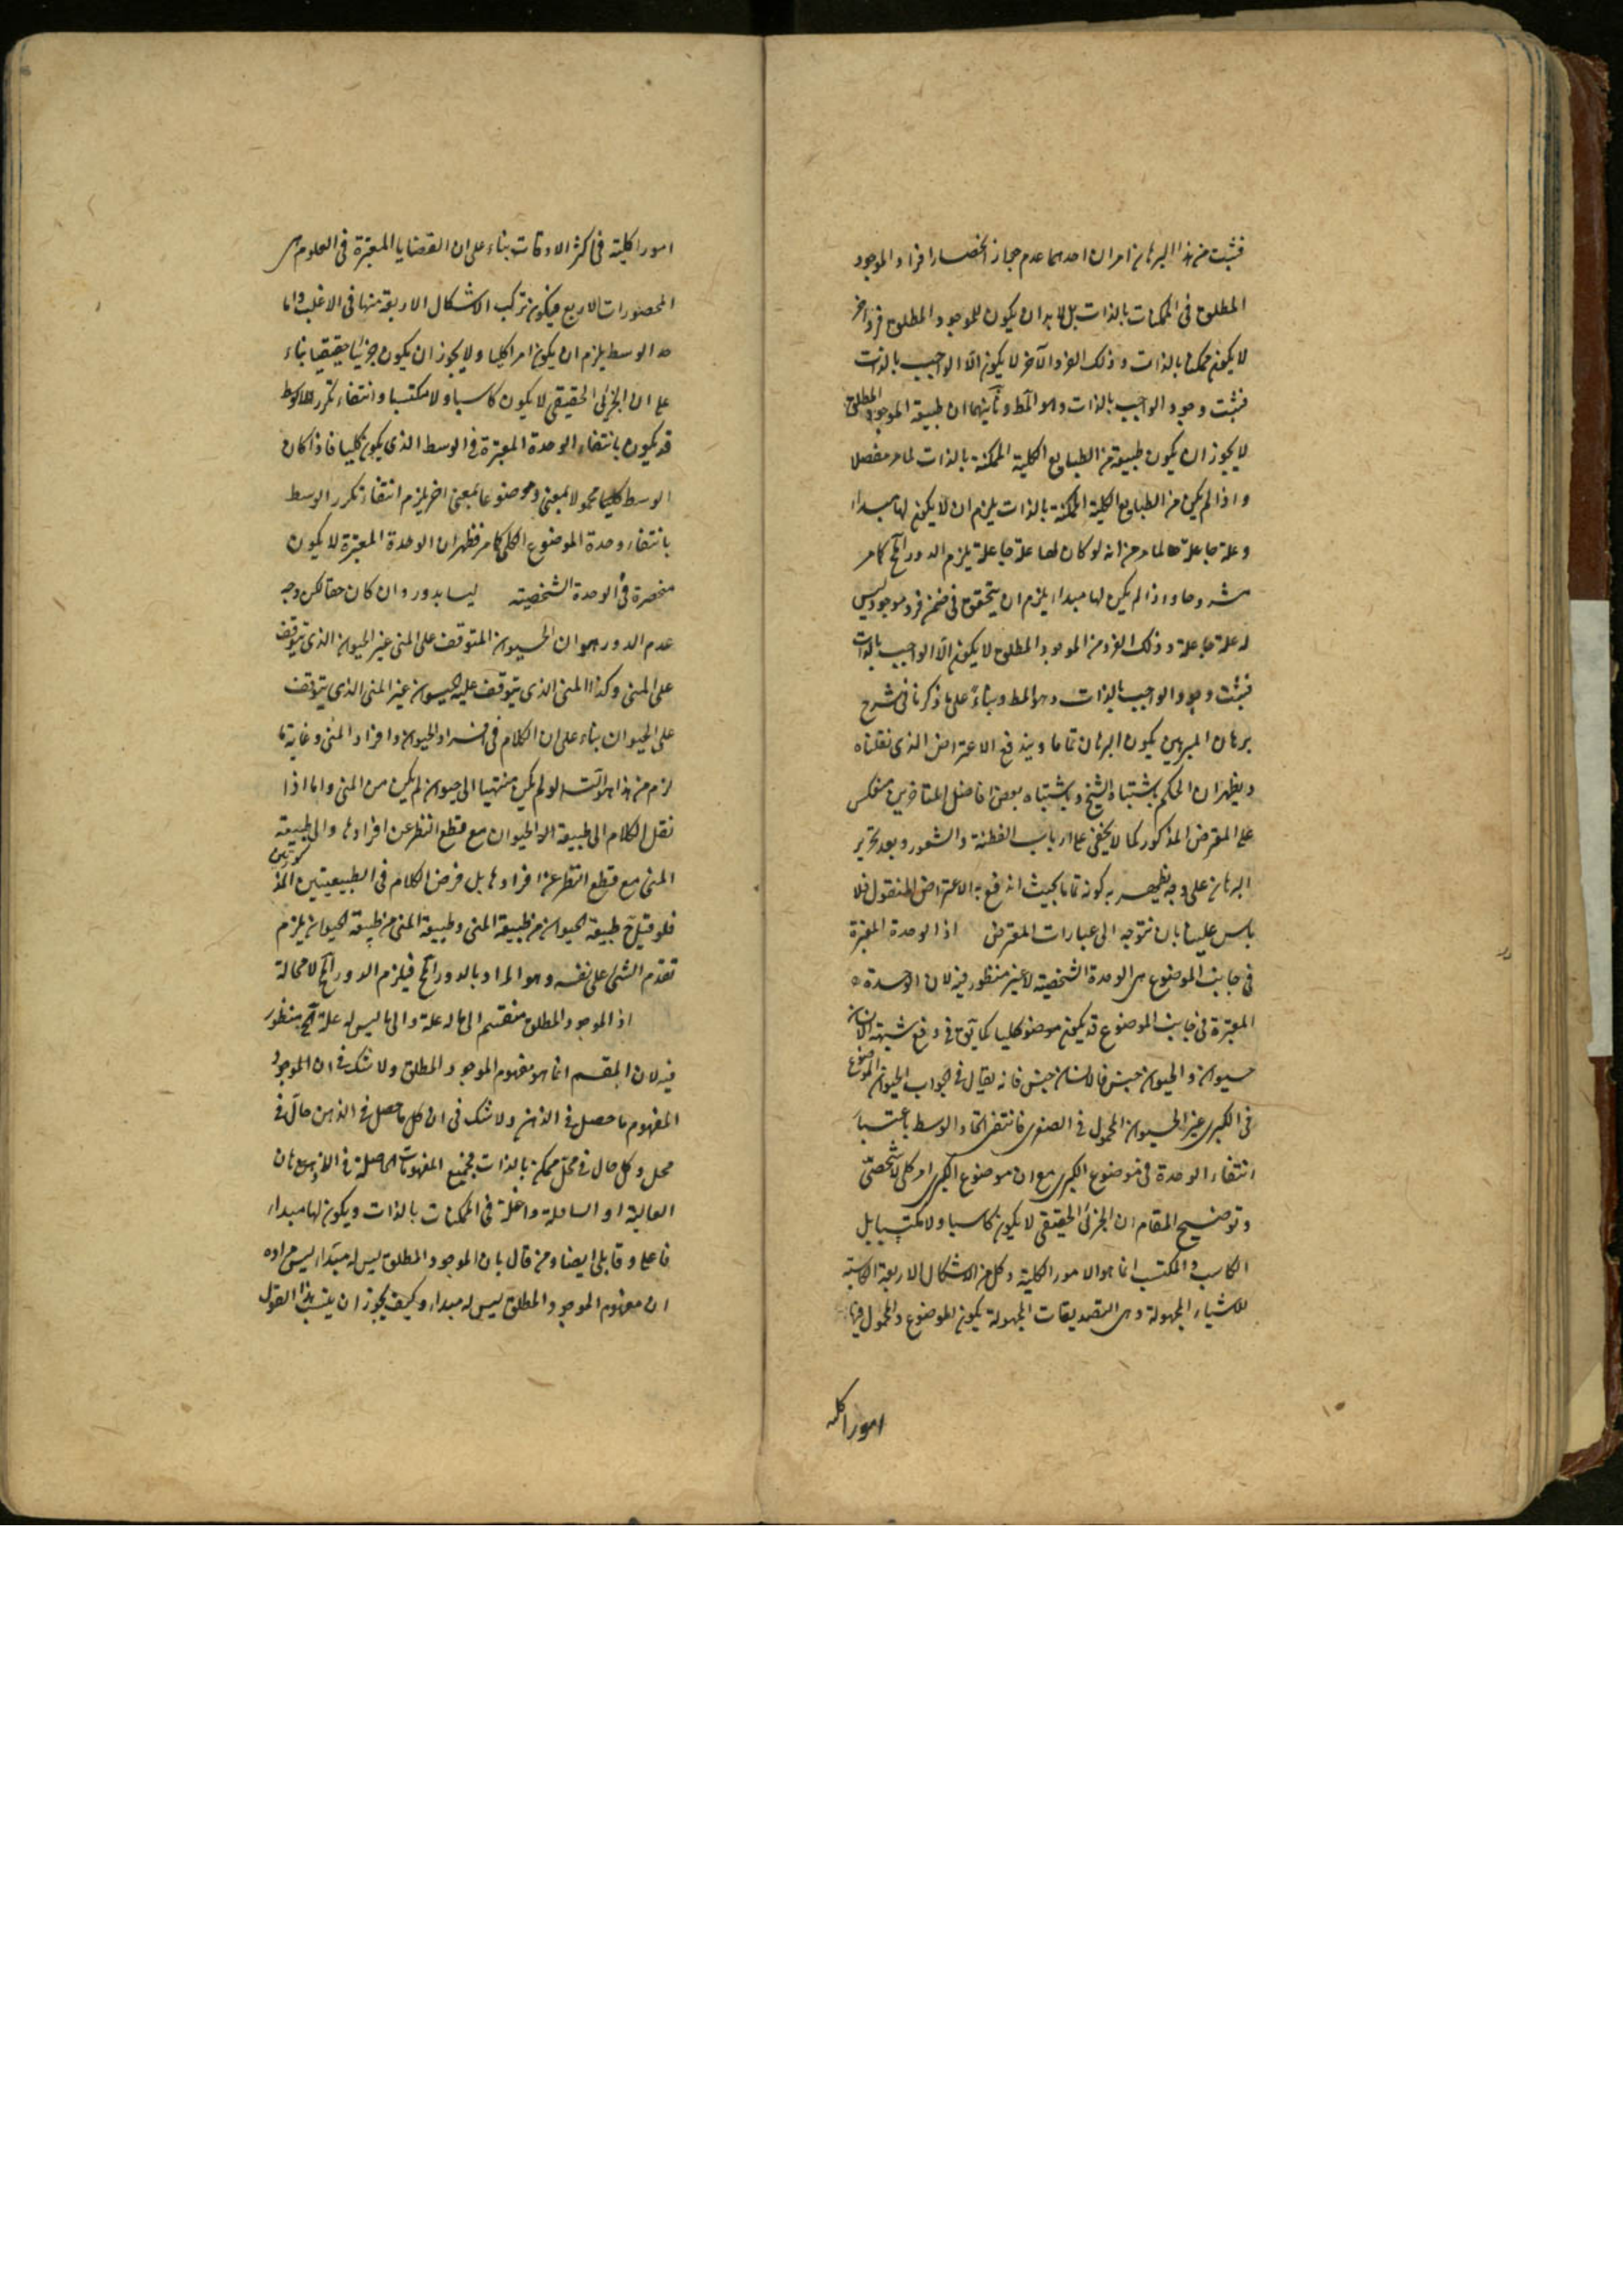 فثبت من هذا البرهان امران احدهما عدم جواز انحصار افراد الموجود
المطلق فى الممكنات بالذات بل لا بد ان يكون للموجود المطلق فرد آخر
لا يكون ممكنا بالذات وذلك الفرد الآخر لا يكون الا الواجب بالذات
فثبت وجود الواجب بالذات وهو المط وثانيهما ان طبيعة الموجود المطلق
لا يجوز ان يكون طبيعة من الطبايع الكلية الممكنة بالذات لما مر مفصلا
واذا لم يكن من الطبايع الكلية الممكنة بالذات يلزم ان لا يكون لها مبداء
وعلة جاعلة لما مر من انه لو كان لها علة جاعلة يلزم الدور كما مر
مشروحا واذا لم يكن لها مبداء يلزم ان يتحقق فى ضمن فرد موجود ليس
له علة جاعلة وذلك الفرد من الموجود المطلق لا يكون الا الواجب بالذات
فثبت وجود الواجب بالذات وهو المط وبناء على ما ذكرنا فى شرح
برهان المبرهن يكون البرهان تماما ويندفع الاعتراض الذى نقلناه
ويظهر ان الحكم باشتباه الشيخ وباشتباه بعض افاضل المتاخرين منعكس
على المعترض المذكور كما لا يخفى على ارباب الفطنة والشعور وبعد تحرير
البرهان على وجه يظهر به كونه تماما بحيث اندفع به الاعتراض المنقول فلا
باس علينا بان نتوجه الى عبارات المعترض اذ الوحدة المعتبرة
فى جانب الموضوع هى الوحدة الشخصية لا غير منظور فيه لان الوحدة
المعتبرة فى جانب الموضوع قد يكون موضوعا كليا كما يق فى دفع شبهة الانسان
حيوان والحيوان جنس فالانسان جنس فانه يقال فى الجواب الحيوان الموضوع
فى الكبرى غير الحيوان المحمول فى الصغرى فانتفى اتحاد الوسط باعتبار
انتفاء الوحدة فى موضوع الكبرى مع ان موضوع الكبرى امر كلى لا شخصى
وتوضيح المقام ان الجزئى الحقيقى لا يكون كاسبا ولا مكتسبا بل
الكاسب والمكتسب انما هو الامور الكلية وكل من الاشكال الاربعة الكاسبة
للاشياء المجهولة وهى التصديقات المجهولة يكون الموضوع والمحمول فيها
امورا كلية
امورا كلية فى اكثر الاوقات بناء على ان القضايا المعتبرة فى العلوم هى
المحصورات الاربع فيكون تركب الاشكال الاربعة منها فى الاغلب واما
حد الوسط يلزم ان يكون امرا كليا ولا يجوز ان يكون جزئيا حقيقيا بناء
على ان الجزئى الحقيقى لا يكون كاسبا ولا مكتسبا وانتفاء تكرر الاوسط
قد يكون بانتفاء الوحدة المعتبرة فى الوسط الذى يكون كليا فاذا كان
الوسط كليا محمولا بمعنى وموضوعا بمعنى اخر يلزم انتفاء تكرر الوسط
بانتفاء وحدة الموضوع الكلى كما مر فظهر ان الوحدة المعتبرة لا يكون
منحصرة فى الوحدة الشخصية ليسا بدور وان كان حقا لكن وجه
عدم الدور هو ان الحيوان المتوقف على المنى غير الحيوان الذى يتوقف
على المنى وكذا المنى الذى يتوقف عليه الحيوان غير المنى الذى يتوقف
على الحيوان بناء على ان الكلام فى افراد الحيوان وافراد المنى وغاية ما
لزم من هذا هو التسلسل لو لم يكن منتهيا الى حيوان لم يكن من المنى واما اذا
نقل الكلام الى طبيعة الحيوان مع قطع النظر عن افرادها والى طبيعة
المنى مع قطع النظر عن افرادها بل فرض الكلام فى الطبيعيتين المذكورتين
فلو قيل طبيعة الحيوان من طبيعة المنى وطبيعة المنى من طبيعة الحيوان يلزم
تقدم الشئ على نفسه وهو المراد بالدور فيلزم الدور لا محالة
اذ الموجود المطلق منقسم الى ما له علة والى ما ليس له علة منظور
فيه لان المقسم انما هو مفهوم الموجود المطلق ولا شك فى ان الموجود
المفهوم ما حصل فى الذهن ولا شك فى ان كل ما حصل فى الذهن حال فى
محل وكل حال فى محل ممكن بالذات فجميع المفهومات الحاصلة فى الاذهان
العالية او السافلة داخلة فى الممكنات بالذات ويكون لها مبداء
فاعلى وقابلى ايضا ومن قال بان الموجود المطلق ليس له مبداء ليس مراده
ان مفهوم الموجود المطلق ليس له مبداء وكيف يجوز ان ينسب هذا القول